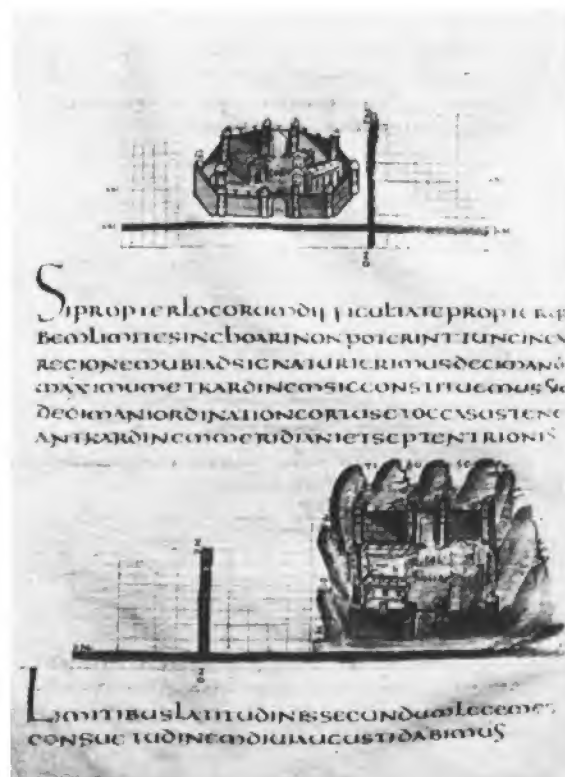 SIPROPTERLOCORUMDIFFICULTATEPROPTER
BEMLIMITESINCHOARINONPOTERINTTUNCINEA
REGIONEMUBIADSIGNATURIERIMUSDECIMANŪ
MAXIMUMETKARDINEMSICCONSTITUEMUSSIC
DECIMANIORDINATIONEORTUSETOCCASUSTENE
ANTKARDINEMMERIDIANIETSEPTENTRIONIS
LIMITIBUSLATITUDINESSECUNDUMLEGEMET
CONSUETUDINEMDIUIAUGUSTIDABIMUS